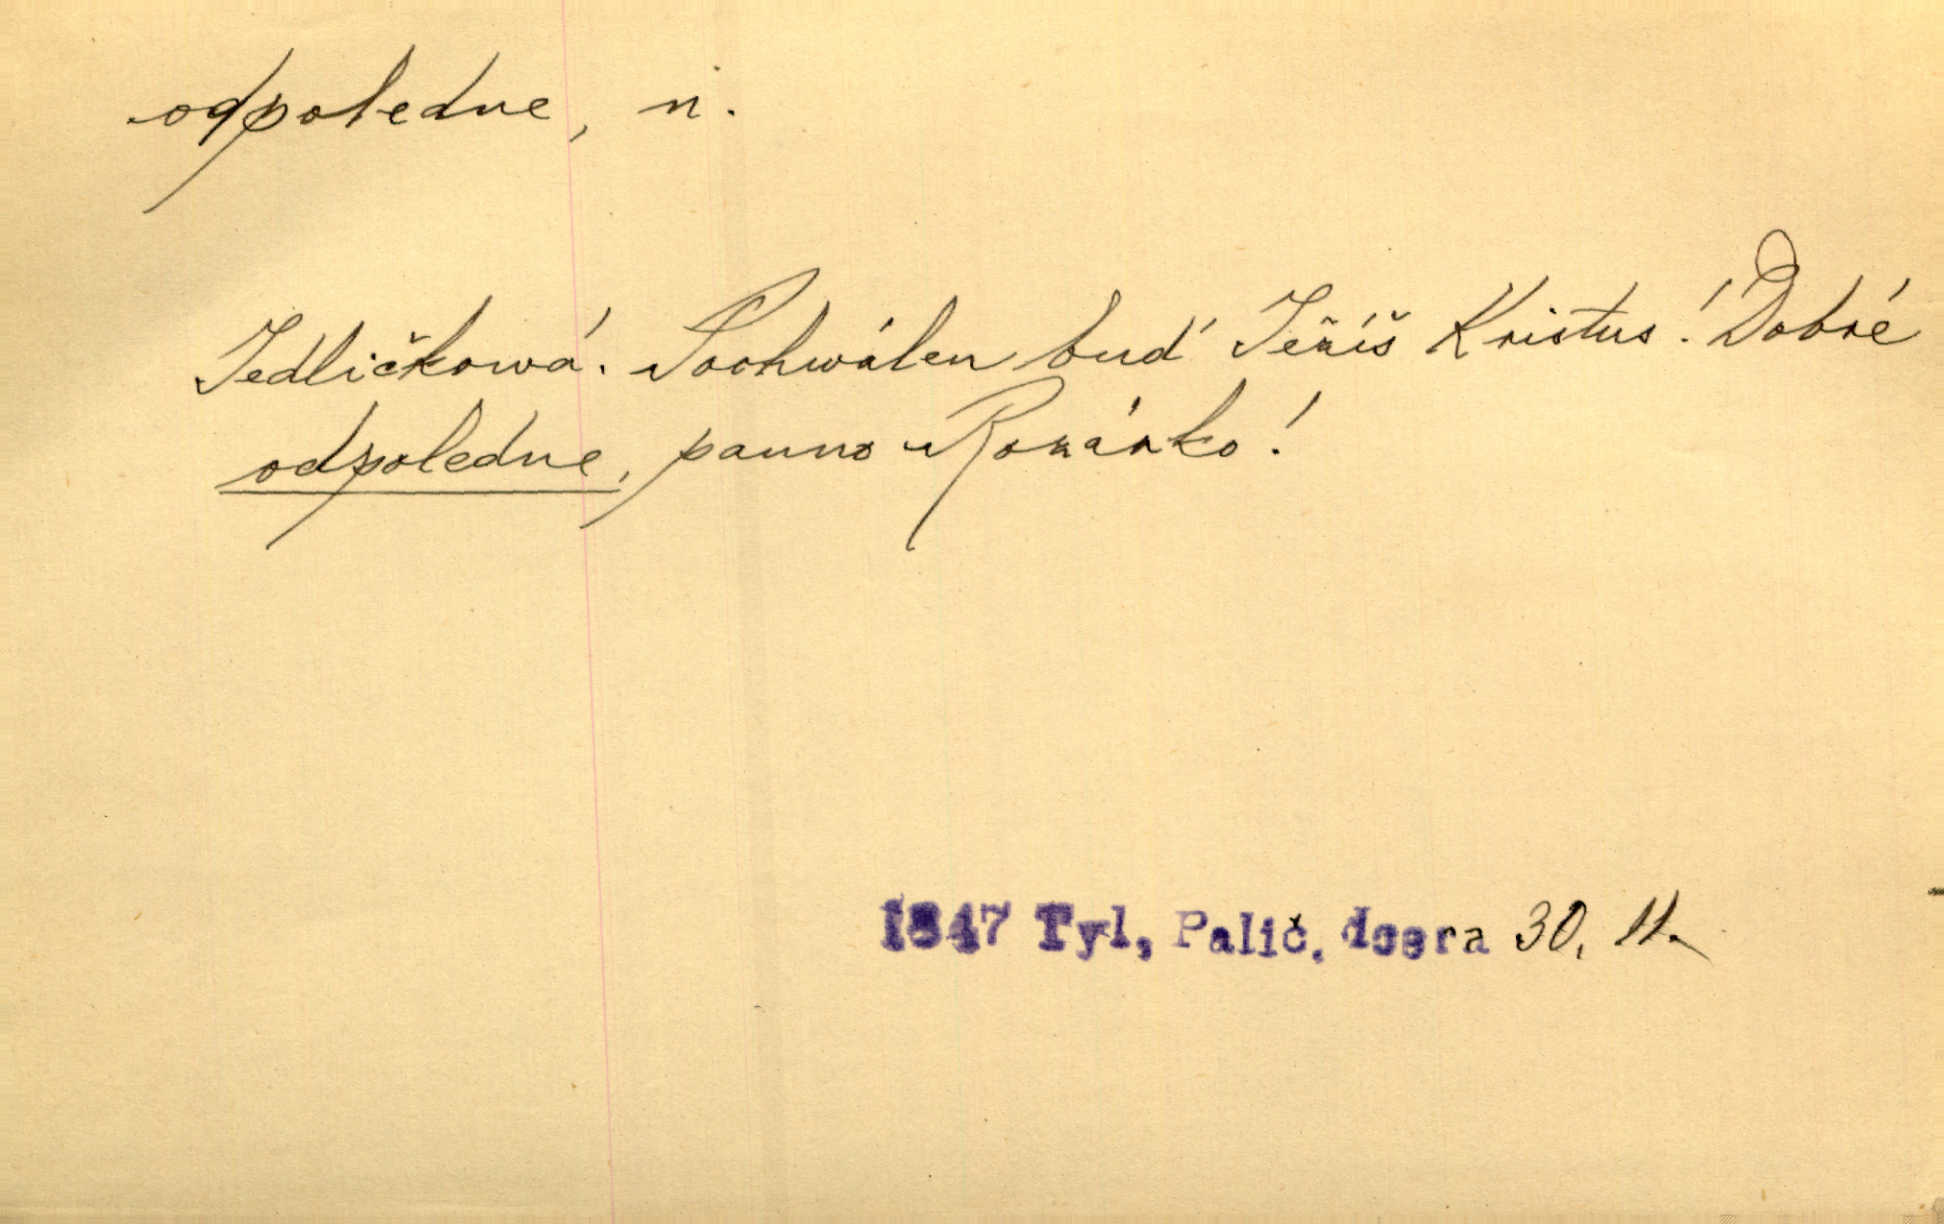 odpoledne, n.
Jedličkowá. Pochwálen buď Ježíš Kristus! Dobré
odpoledne, panno Rozárko!
1847 Tyl, Palič. dcera 30, 11.